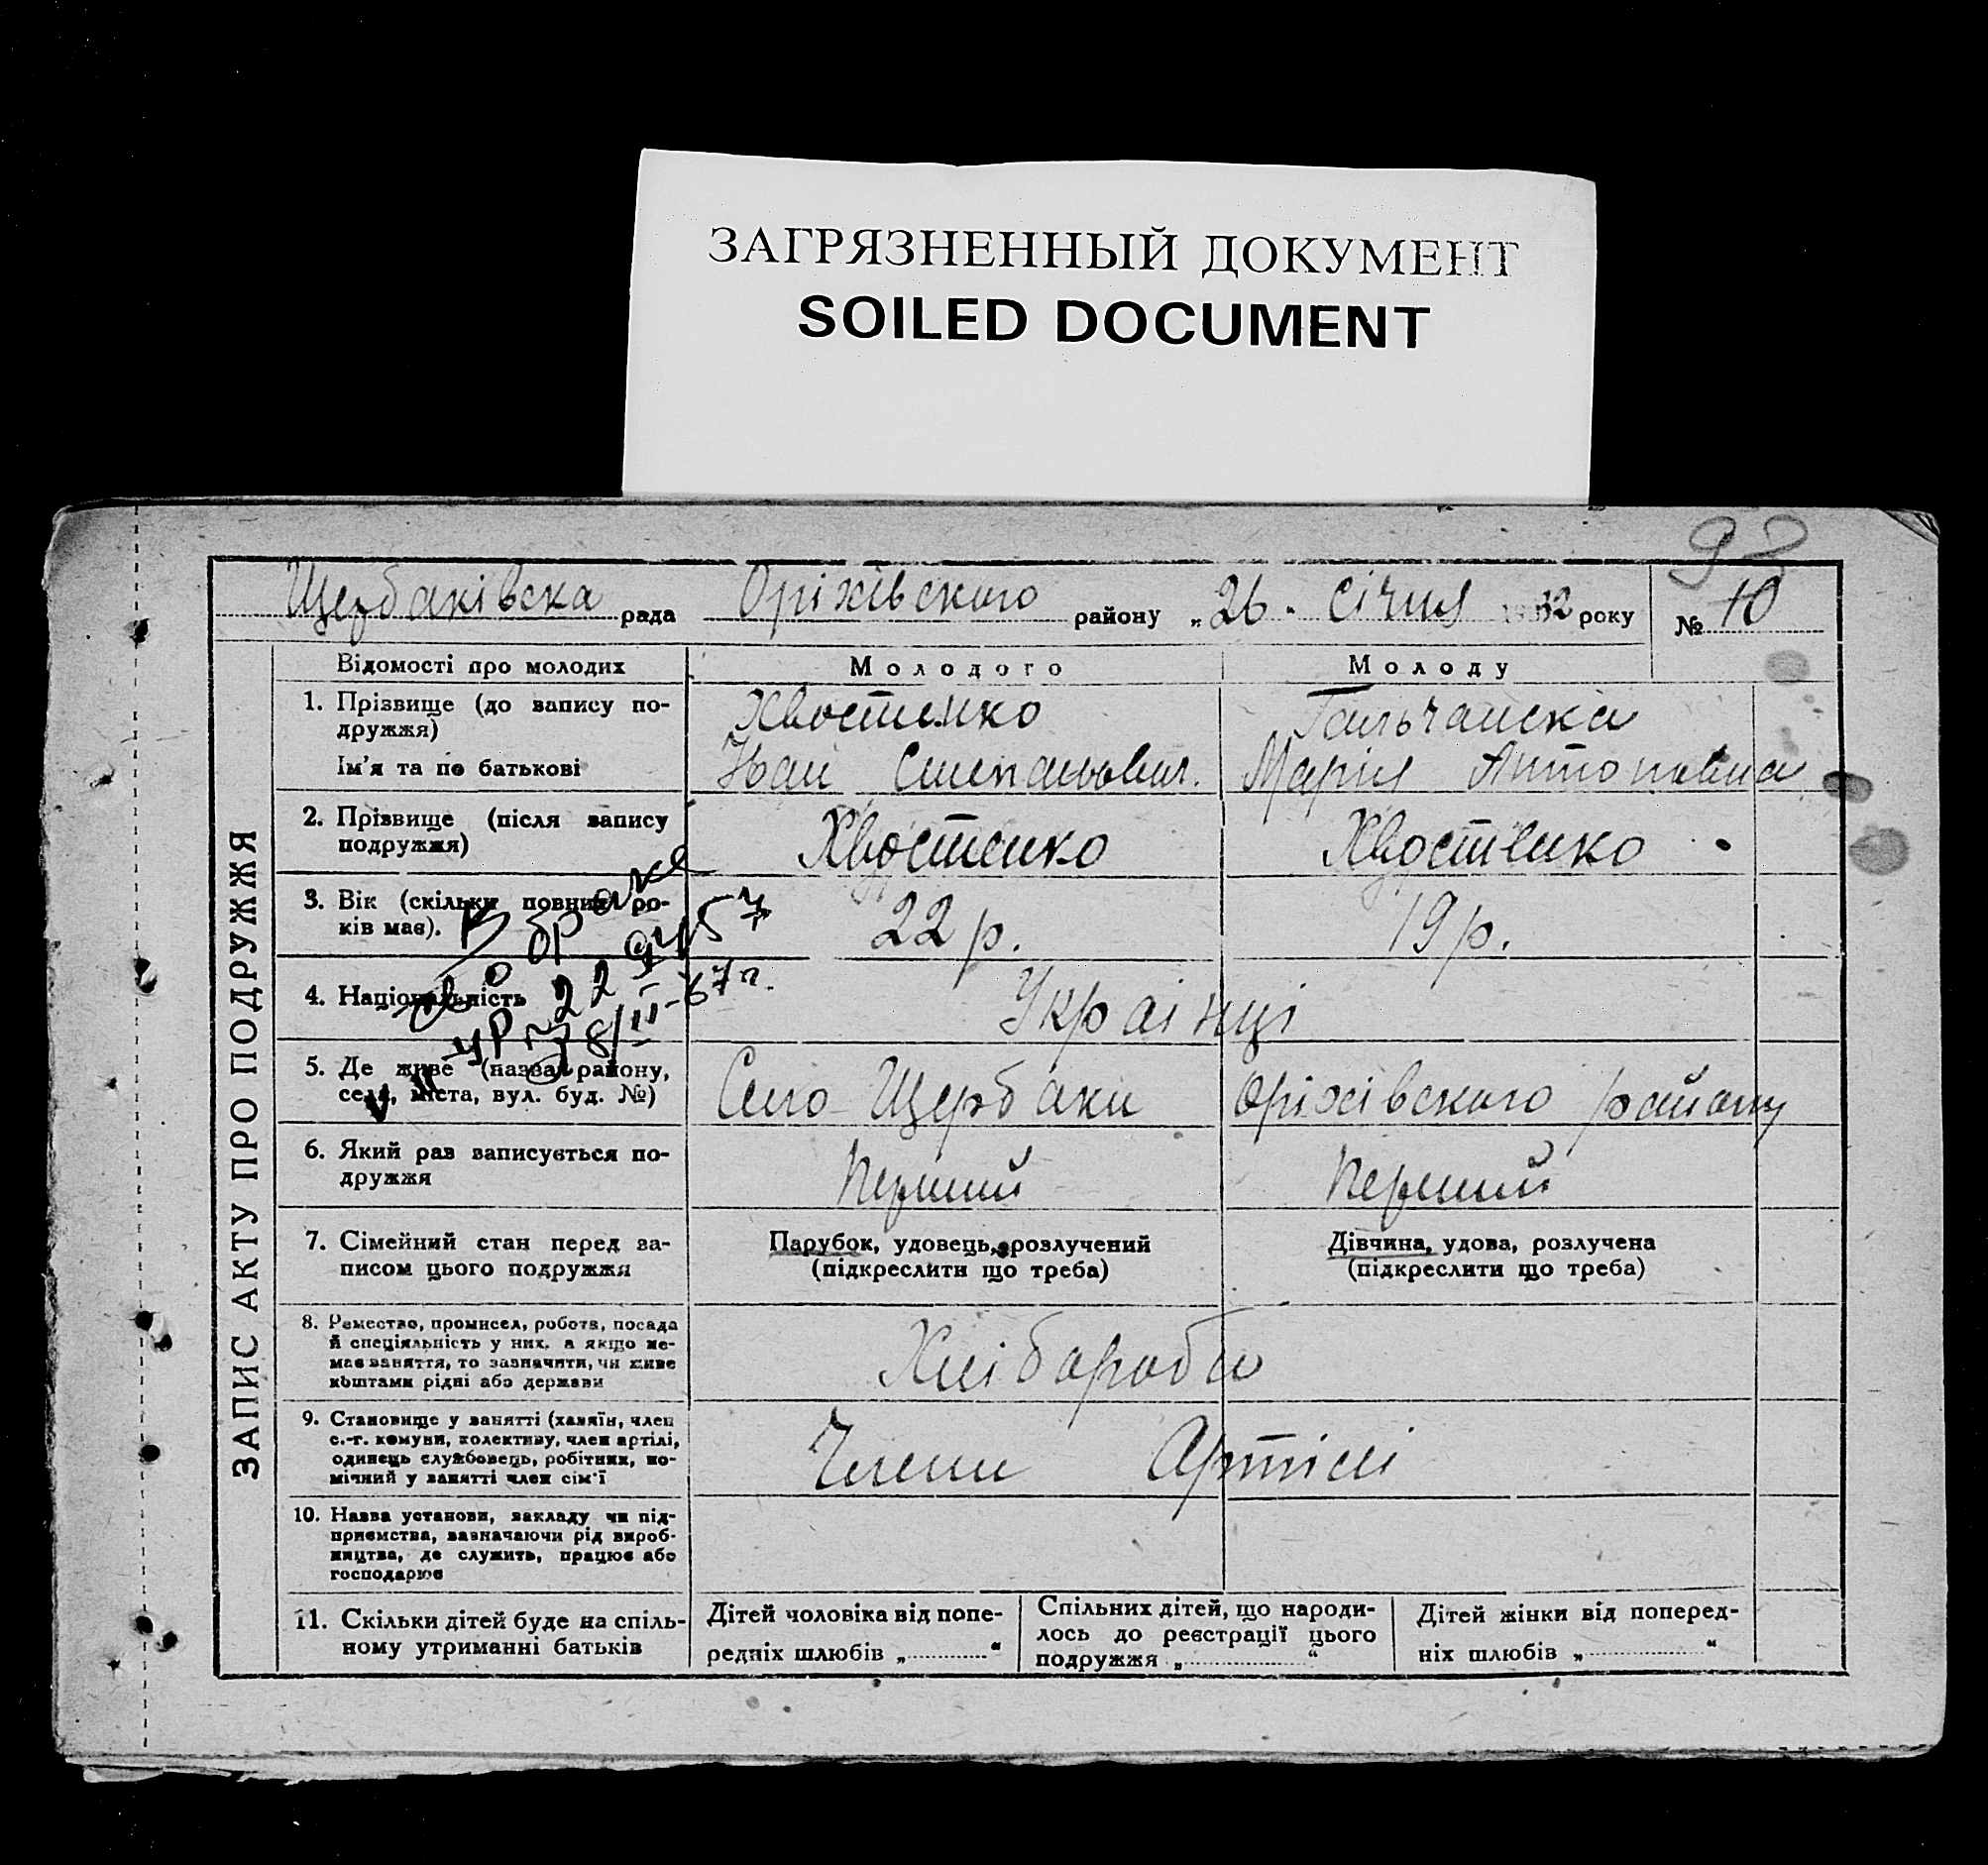 ЗАГРЯЗНЕННЫЙ ДОКУМЕНТ
SOILED DOCUMENT
93
Щербаківска рада Оріхівского району „26. Січня 1932 року № 10
ЗАПИС АКТУ ПРО ПОДРУЖЖЯ
Відомості про молодих Молодого Молоду
1. Прізвище (до запису по-
дружжя)
Хвостенко Гальчанска
Ім'я та по батькові
Іван Степанович. Марія Антоновна
2. Прізвище (після запису
подружжя)
Хвостенко Хвостенко
3. Вік (скільки повних ро-
ків має).
22 р. 19 р.
В браке
4. Національність
Українці
22
8/III-67г.
5. Де живе (назва району,
села, міста, вул. буд. №)
Село Щербаки Оріхівского району
6. Який раз записується по-
дружжя
Перший Перший
7. Сімейний стан перед за-
писом цього подружжя
Парубок, удовець, розлучений
(підкреслити що треба)
Дівчина, удова, розлучена
(підкреслити що треба)
8. Ремество, промисел, робота, посада
й спеціяльність у них, а якщо не-
має заняття, то зазначити, чи живе
коштами рідні або держави
Хліборобы
9. Становище у занятті (хазяїн, член
с.-г. комуни, колективу, член артілі,
одинець службовець, робітник, по-
мічний у занятті член сім'ї
Члени Артілі
10. Назва установи, закладу чи під-
приємства, зазначаючи рід вироб-
ництва, де служить, працює або
господарює
11. Скільки дітей буде на спіль-
ному утриманні батьків
Дітей чоловіка від попе-
редніх шлюбів „ “
Спільних дітей, що народи-
лось до реєстрації цього
подружжя „ “
Дітей жінки від поперед-
ніх шлюбів „ “